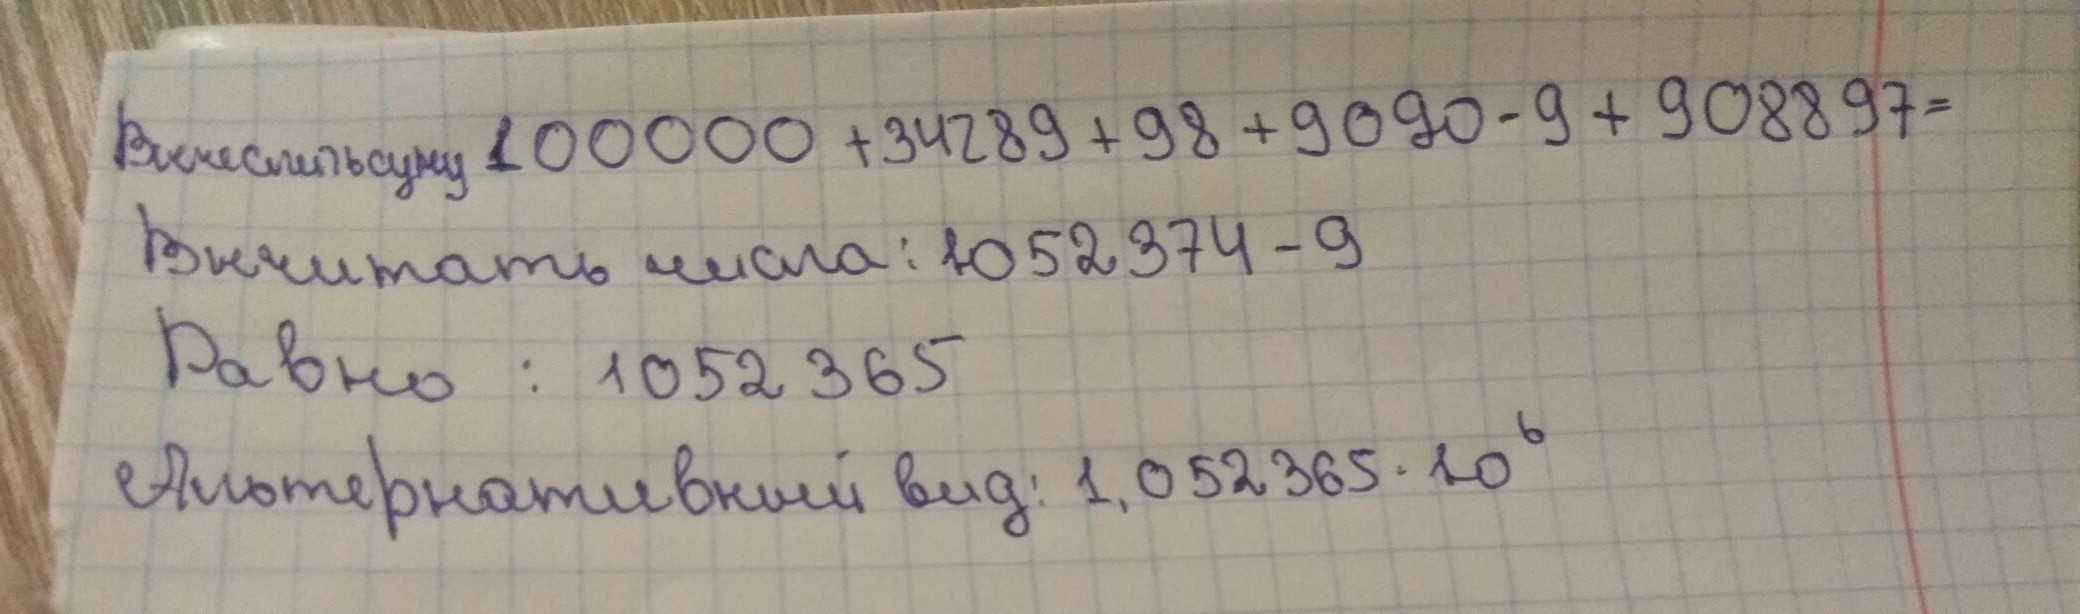 Вычеслить суму 100000 + 34289 + 98 + 9090 - 9 + 908897 =
Вычитать числа: 1052374 - 9
Равно : 1052365
Альтернативный вид: 1,052365 · 10⁶